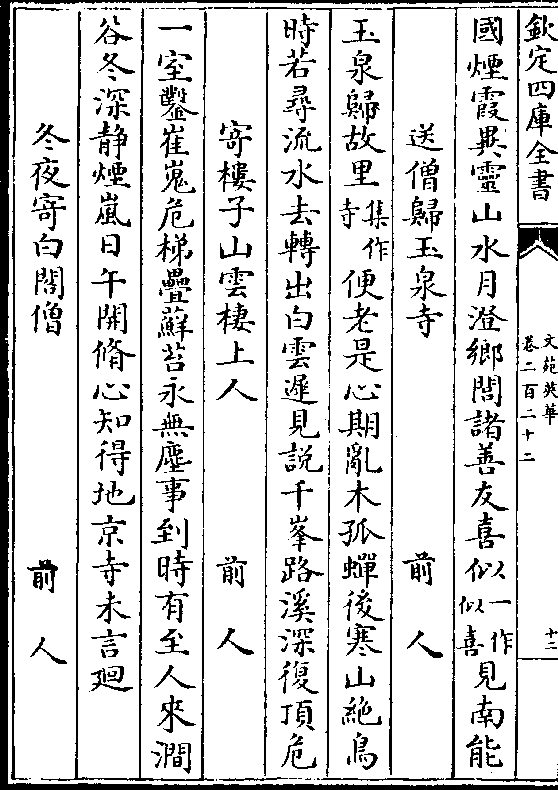 欽定四庫全書
文苑英華
卷二百二十二
十二
國煙霞異靈山水月澄鄉閭諸善友喜似一作似喜見南能
送僧歸玉泉寺 前人
玉泉歸故里集作寺便老是心期亂木孤蟬後寒山絶鳥
時若尋流水去轉出白雲遲見説千峯路溪深復頂危
寄樓子山雲棲上人 前人
一室鑿崔嵬危梯疊蘇苔永無塵事到時有至人來澗
谷冬深静煙嵐日午開脩心知得地京寺未言廻
冬夜寄白閣僧 前人